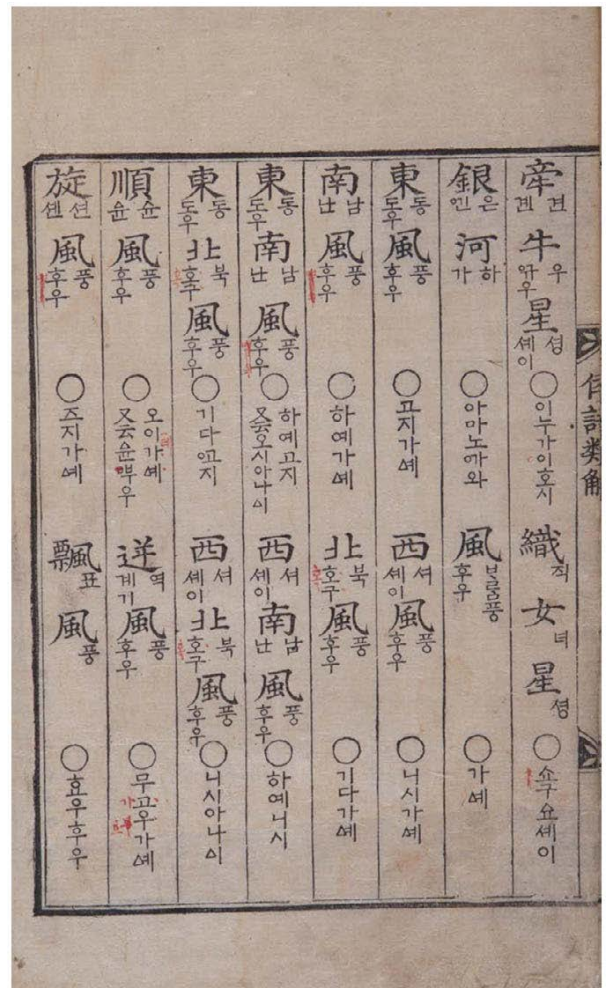 倭語類解
牽견켄牛우星셩셰이○이누가이호시 織직女녀星셩○쇼구요셰이
銀은河하가○아마노까와 風ᄇᆞ룸풍후우○가셰
東동도우風풍후우○고지가셰 西셔셰이風풍후우○니시가셰
南남난風풍후우○하예가셰 北북호구風풍후우○기다가셰
東동도우南남난風풍후우○하예고지又云오시아나이 西셔셰이南남난風풍후우○하예니시
東동도우北북호구風풍후우○기다고지 西셔셰이北북호구風풍후우○니시아나이
順슌윤風풍후우○오이가셰又云윤뿌우 逆역계기風풍후우○무고우가셰
旋션센風풍후우○즈지가셰 飄표風풍○효우후우